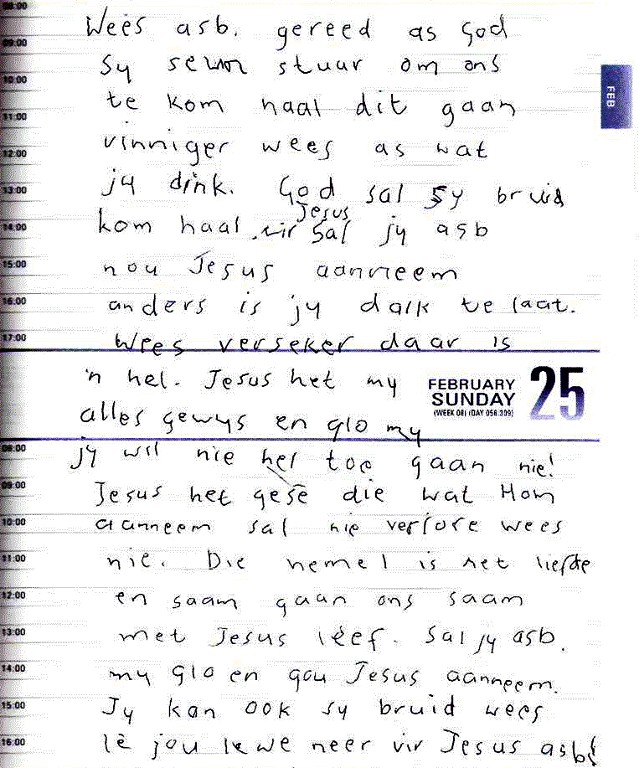 08:00
Wees asb. gereed as God
09:00
Sy seun stuur om ons
10:00
FEB
te kom haal dit gaan
11:00
vinniger wees as wat
12:00
jy dink. God sal sy bruid
13:00
Jesus
kom haal. vir sal jy asb
14:00
nou Jesus aanneem
15:00
anders is jy dalk te laat.
16:00
Wees verseker daar is
17:00
'n hel. Jesus het my
FEBRUARY 25
SUNDAY
(WEEK 08) (DAY 056.309)
alles gewys en glo my
jy wil nie hel toe gaan nie!
08:00
Jesus het gesê die wat Hom
09:00
aanneem sal nie verlore wees
10:00
nie. Die hemel is net liefde
11:00
en saam gaan ons saam
12:00
met Jesus lééf. Sal jy asb.
13:00
my glo en gou Jesus aanneem.
14:00
Jy kan ook sy bruid wees
15:00
lê jou lewe neer vir Jesus asb!
16:00